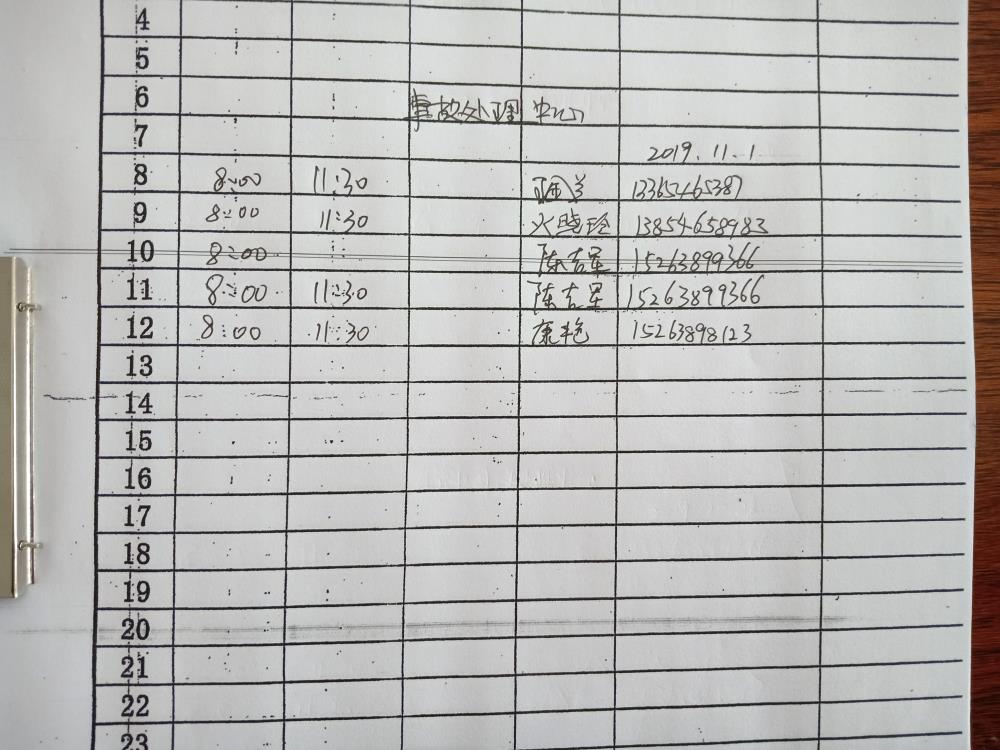 4
5
6 事故处理中心
7 2019.11.1
8 8:00 11:30 13365465387
9 8:00 11:30 火晓玲 13854658983
10 8:00 陈吉星 15263899366
11 8:00 11:30 陈吉星 15263899366
12 8:00 11:30 康艳 15263898123
13
14
15
16
17
18
19
20
21
22
23